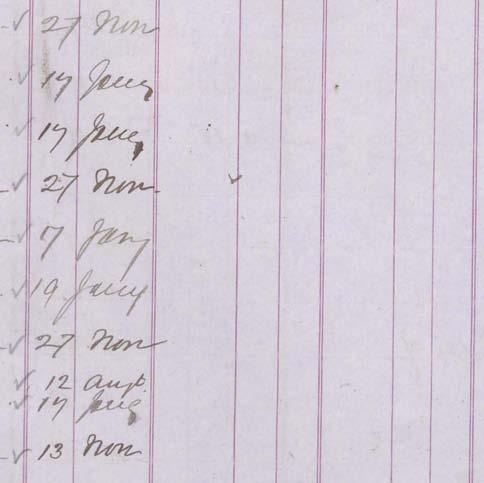 ✓ 27 Nov
✓ 17 Jany
✓ 17 Jany
✓ 27 Nov ✓
✓ 7 Jany
✓ 19 Jany
✓ 27 Nov
✓ 12 Augt
✓ 17 Jany
✓ 13 Nov